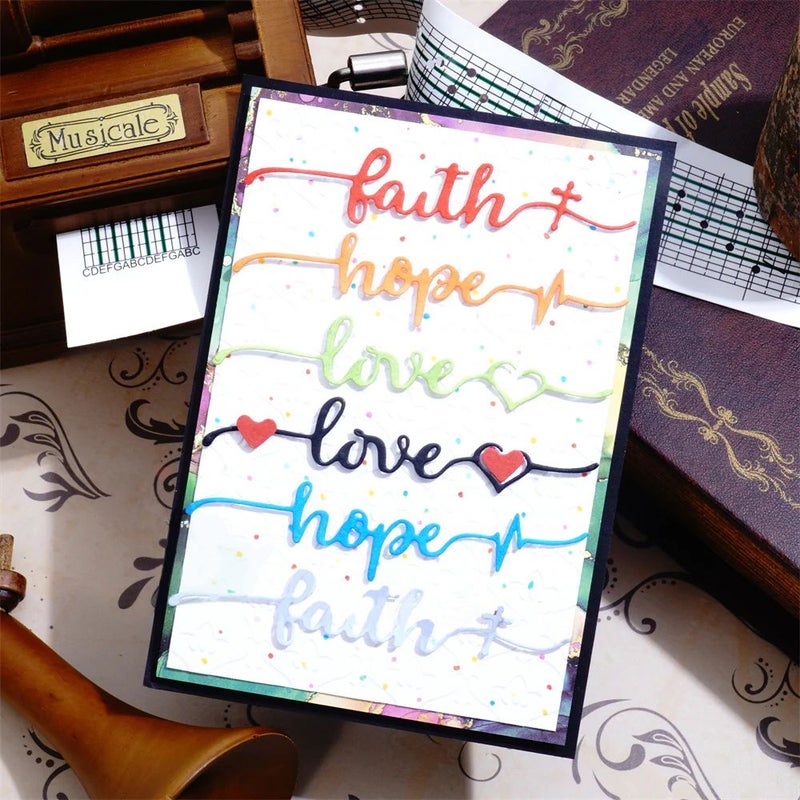 Musicale
CDEFGABCDEFGABC
Sample of
EUROPEAN AND
LEGENDAR
faith
hope
love
love
hope
faith